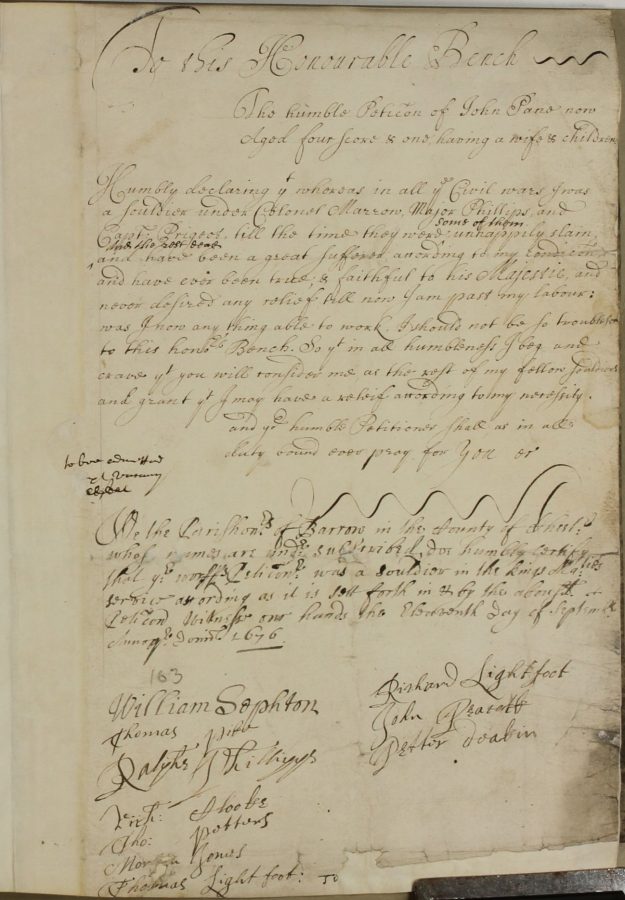 To this Honourable Bench
The humble Peticon of John Pane now
Aged four score & one, having a wife & children
Humbly declaring yt whereas in all ye Civil wars I was
a souldier under Colonel Marrow, Major Phillips, and
some of them
Captn: Prigeot, till the time they were unhappily slain,
and the rest dead
and have been a great sufferer according to my condicon
and have ever been true, & faithful to his Majestie, and
never desired any relief till now I am past my labour:
was I now any thing able to work, I should not be so troublesom
to this honble Bench. So yt in all humbleness I beg and
crave yt you will consider me as the rest of my fellow souldiers
and grant yt I may have a releif according to my necessity.
and yor humble Petitioner shall as in all
duty bound ever pray for You &c
to bee admitted
We the Parishonrs of Barrow in the County of Chester
whose names are undr subscribed, doe humbly certify
that ye Peticonr was a souldier in the kings Maties
service according as it is sett forth in & by the above
Peticon Witness our hands the Eleventh Day of Septembr
Annoq Domi: 1676
163
William Sephton
Richard Lightfoot
Thomas
John Peacock
Ralphe Phillipps
Petter deakin
Rich:
Tho: Potters
Morgan Jones
Thomas Lightfoot: To